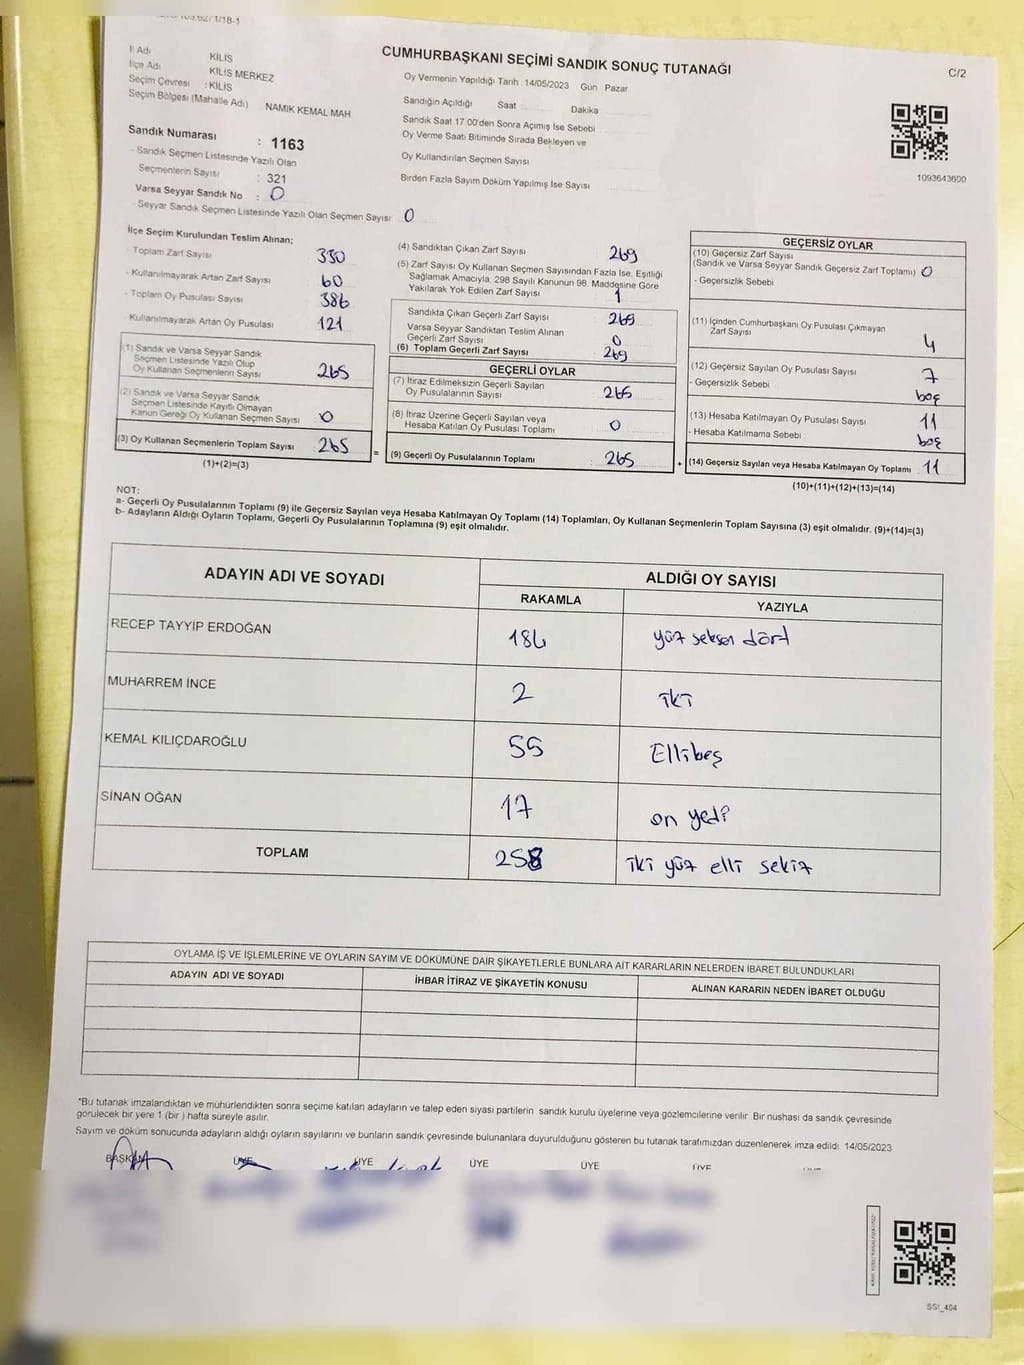 CUMHURBAŞKANI SEÇİMİ SANDIK SONUÇ TUTANAĞI
C/2
İl Adı KİLİS
İlçe Adı KİLİS MERKEZ
Seçim Çevresi : KİLİS
Seçim Bölgesi (Mahalle Adı) NAMIK KEMAL MAH
Sandık Numarası : 1163
- Sandık Seçmen Listesinde Yazılı Olan
Seçmenlerin Sayısı : 321
Varsa Seyyar Sandık No : 0
- Seyyar Sandık Seçmen Listesinde Yazılı Olan Seçmen Sayısı: 0
Oy Vermenin Yapıldığı Tarih : 14/05/2023 Gün Pazar
Sandığın Açıldığı Saat Dakika
Sandık Saat 17.00'den Sonra Açımış İse Sebebi
Oy Verme Saati Bitiminde Sırada Bekleyen ve
Oy Kullandırılan Seçmen Sayısı
Birden Fazla Sayım Döküm Yapılmış İse Sayısı
1093643600
İlçe Seçim Kurulundan Teslim Alınan;
- Toplam Zarf Sayısı 330
- Kullanılmayarak Artan Zarf Sayısı 60
- Toplam Oy Pusulası Sayısı 386
- Kullanılmayarak Artan Oy Pusulası 121
(1) Sandık ve Varsa Seyyar Sandık
Seçmen Listesinde Yazılı Olup
Oy Kullanan Seçmenlerin Sayısı 265
(2) Sandık ve Varsa Seyyar Sandık
Seçmen Listesinde Kayıtlı Olmayan
Kanun Gereği Oy Kullanan Seçmen Sayısı : 0
(3) Oy Kullanan Seçmenlerin Toplam Sayısı : 265 =
(1)+(2)=(3)
(4) Sandıktan Çıkan Zarf Sayısı 269
(5) Zarf Sayısı Oy Kullanan Seçmen Sayısından Fazla İse, Eşitliği
Sağlamak Amacıyla, 298 Sayılı Kanunun 98. Maddesine Göre
Yakılarak Yok Edilen Zarf Sayısı : 1
Sandıkta Çıkan Geçerli Zarf Sayısı : 269
Varsa Seyyar Sandıktan Teslim Alınan
Geçerli Zarf Sayısı : 0
(6) Toplam Geçerli Zarf Sayısı 269
GEÇERLİ OYLAR
(7) İtiraz Edilmeksizin Geçerli Sayılan
Oy Pusulalarının Sayısı : 265
(8) İtiraz Üzerine Geçerli Sayılan veya
Hesaba Katılan Oy Pusulası Toplamı : 0
(9) Geçerli Oy Pusulalarının Toplamı : 265 +
GEÇERSİZ OYLAR
(10) Geçersiz Zarf Sayısı
(Sandık ve Varsa Seyyar Sandık Geçersiz Zarf Toplamı) 0
- Geçersizlik Sebebi
(11) İçinden Cumhurbaşkanı Oy Pusulası Çıkmayan
Zarf Sayısı : 4
(12) Geçersiz Sayılan Oy Pusulası Sayısı : 7
- Geçersizlik Sebebi boş
(13) Hesaba Katılmayan Oy Pusulası Sayısı : 11
- Hesaba Katılmama Sebebi : boş
(14) Geçersiz Sayılan veya Hesaba Katılmayan Oy Toplamı : 11
(10)+(11)+(12)+(13)=(14)
NOT:
a- Geçerli Oy Pusulalarının Toplamı (9) ile Geçersiz Sayılan veya Hesaba Katılmayan Oy Toplamı (14) Toplamları, Oy Kullanan Seçmenlerin Toplam Sayısına (3) eşit olmalıdır. (9)+(14)=(3)
b- Adayların Aldığı Oyların Toplamı, Geçerli Oy Pusulalarının Toplamına (9) eşit olmalıdır.
ADAYIN ADI VE SOYADI ALDIĞI OY SAYISI
RAKAMLA YAZIYLA
RECEP TAYYİP ERDOĞAN 184 yüz seksen dört
MUHARREM İNCE 2 iki
KEMAL KILIÇDAROĞLU 55 Ellibeş
SİNAN OĞAN 17 on yedi
TOPLAM 258 iki yüz elli sekiz
OYLAMA İŞ VE İŞLEMLERİNE VE OYLARIN SAYIM VE DÖKÜMÜNE DAİR ŞİKAYETLERLE BUNLARA AİT KARARLARIN NELERDEN İBARET BULUNDUKLARI
ADAYIN ADI VE SOYADI İHBAR İTİRAZ VE ŞİKAYETİN KONUSU ALINAN KARARIN NEDEN İBARET OLDUĞU
*Bu tutanak imzalandıktan ve mühürlendikten sonra seçime katılan adayların ve talep eden siyasi partilerin sandık kurulu üyelerine veya gözlemcilerine verilir. Bir nushası da sandık çevresinde
görülecek bir yere 1 (bir ) hafta süreyle asılır.
Sayım ve döküm sonucunda adayların aldığı oyların sayılarını ve bunların sandık çevresinde bulunanlara duyurulduğunu gösteren bu tutanak tarafımızdan düzenlenerek imza edildi. 14/05/2023
BAŞKAN ÜYE ÜYE ÜYE ÜYE ÜYE
SSİ_404